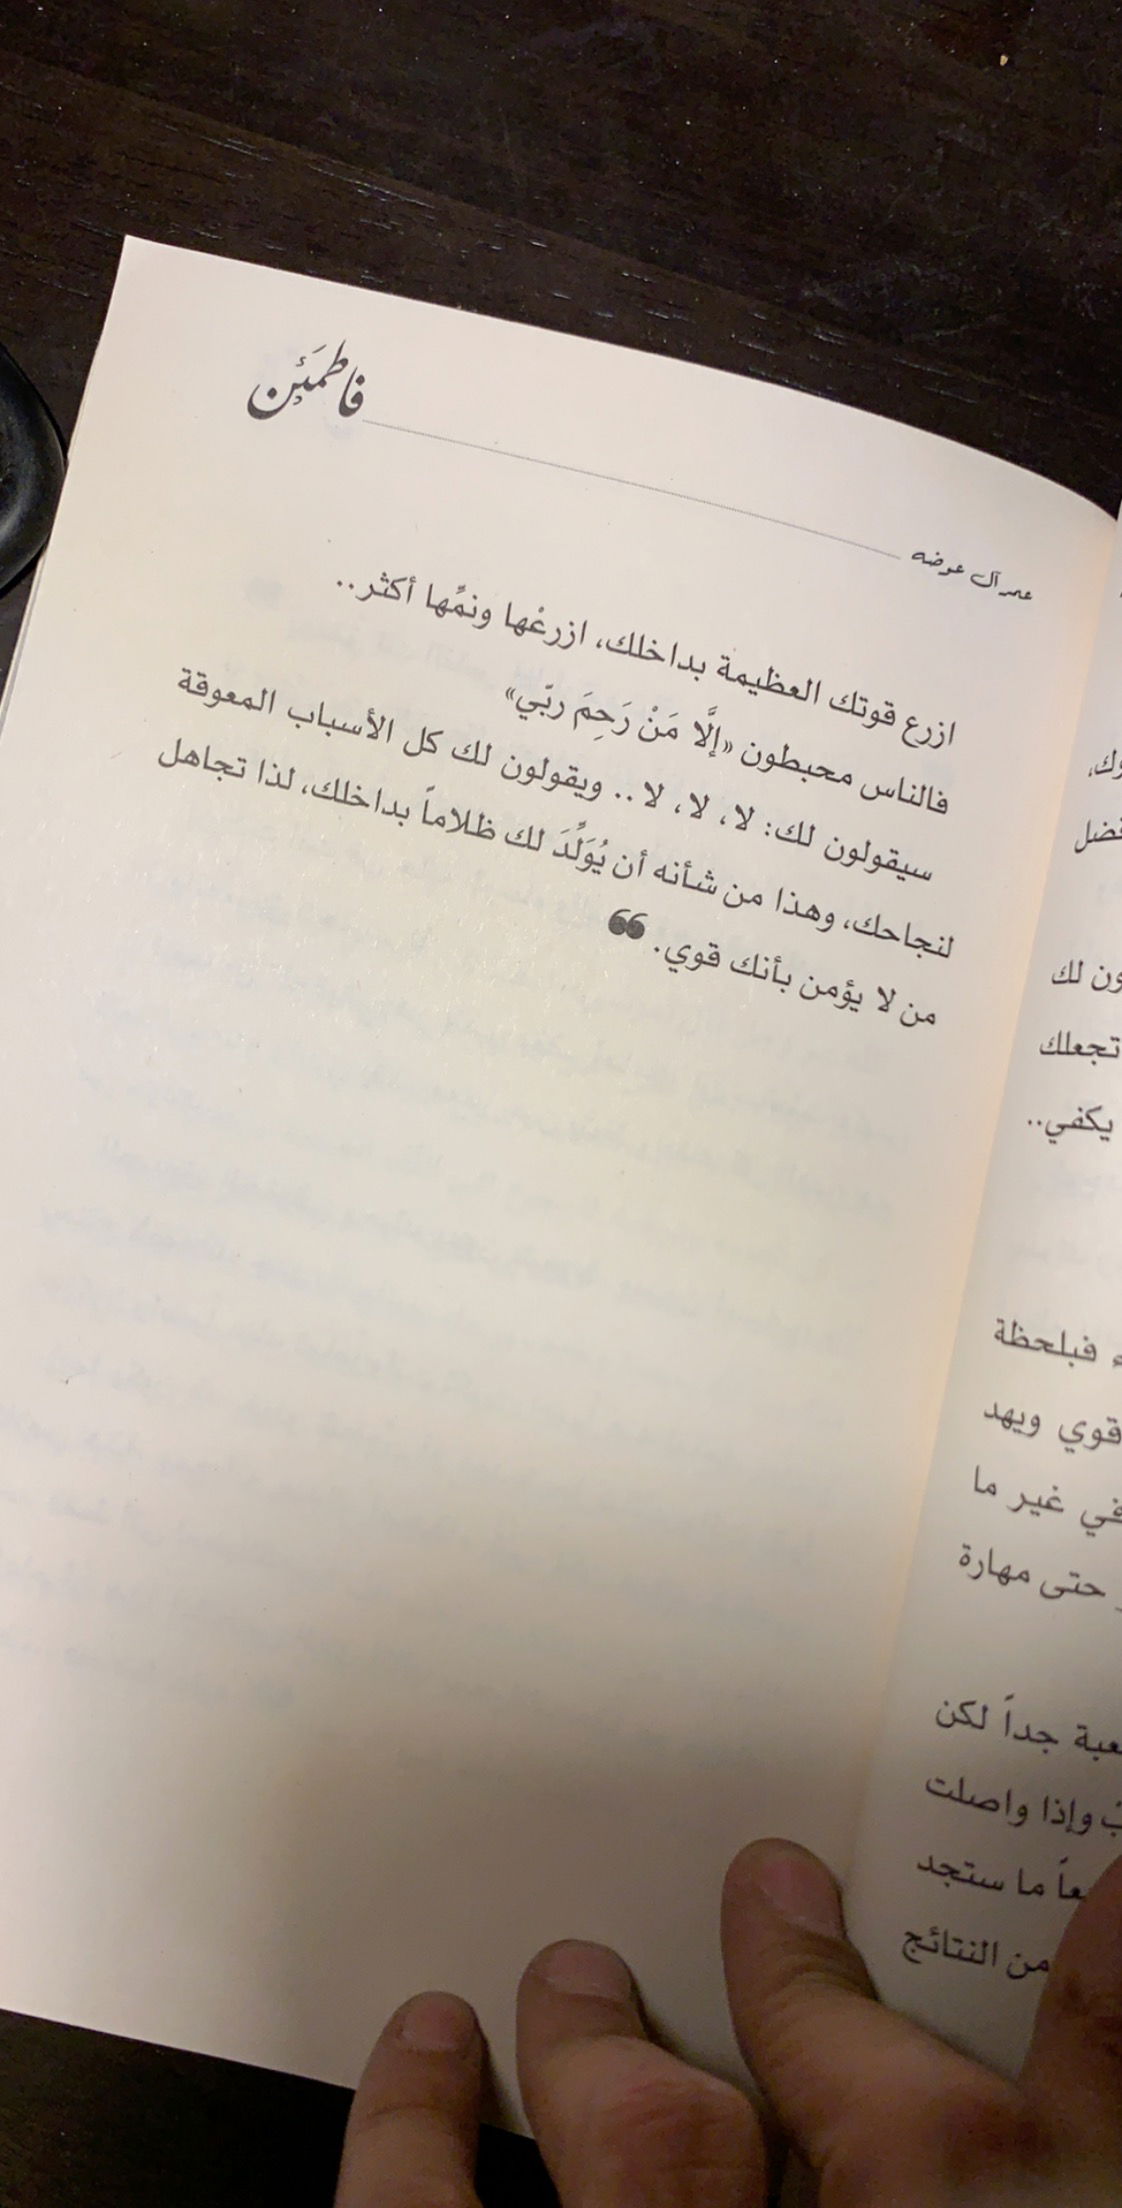 فاطمَئِن
عمر آل عوضه
ازرع قوتك العظيمة بداخلك، ازرعْها ونمِّها أكثر..
فالناس محبطون «إلَّا مَنْ رَحِمَ ربّي»
سيقولون لك: لا، لا، لا .. ويقولون لك كل الأسباب المعوقة
لنجاحك، وهذا من شأنه أن يُوَلِّدَ لك ظلاماً بداخلك، لذا تجاهل
من لا يؤمن بأنك قوي. ❝
فضل
ون لك
تجعلك
يكفي..
فبلحظة
قوي ويهد
في غير ما
حتى مهارة
جداً لكن
وإذا واصلت
ما ستجد
من النتائج